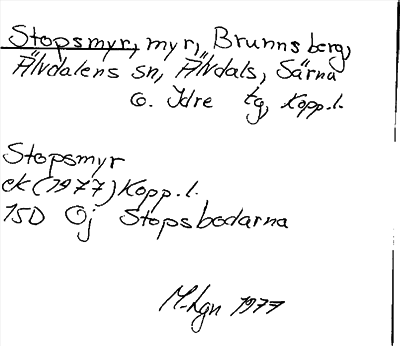 Stopsmyr, myr, Brunnsberg,
Älvdalens sn, Älvdals, Särna
o. Idre tg, Kopp.l.
Stopsmyr
ek (1977) Kopp.l.
15D 0j Stopsbodarna
M-Lgn 1977